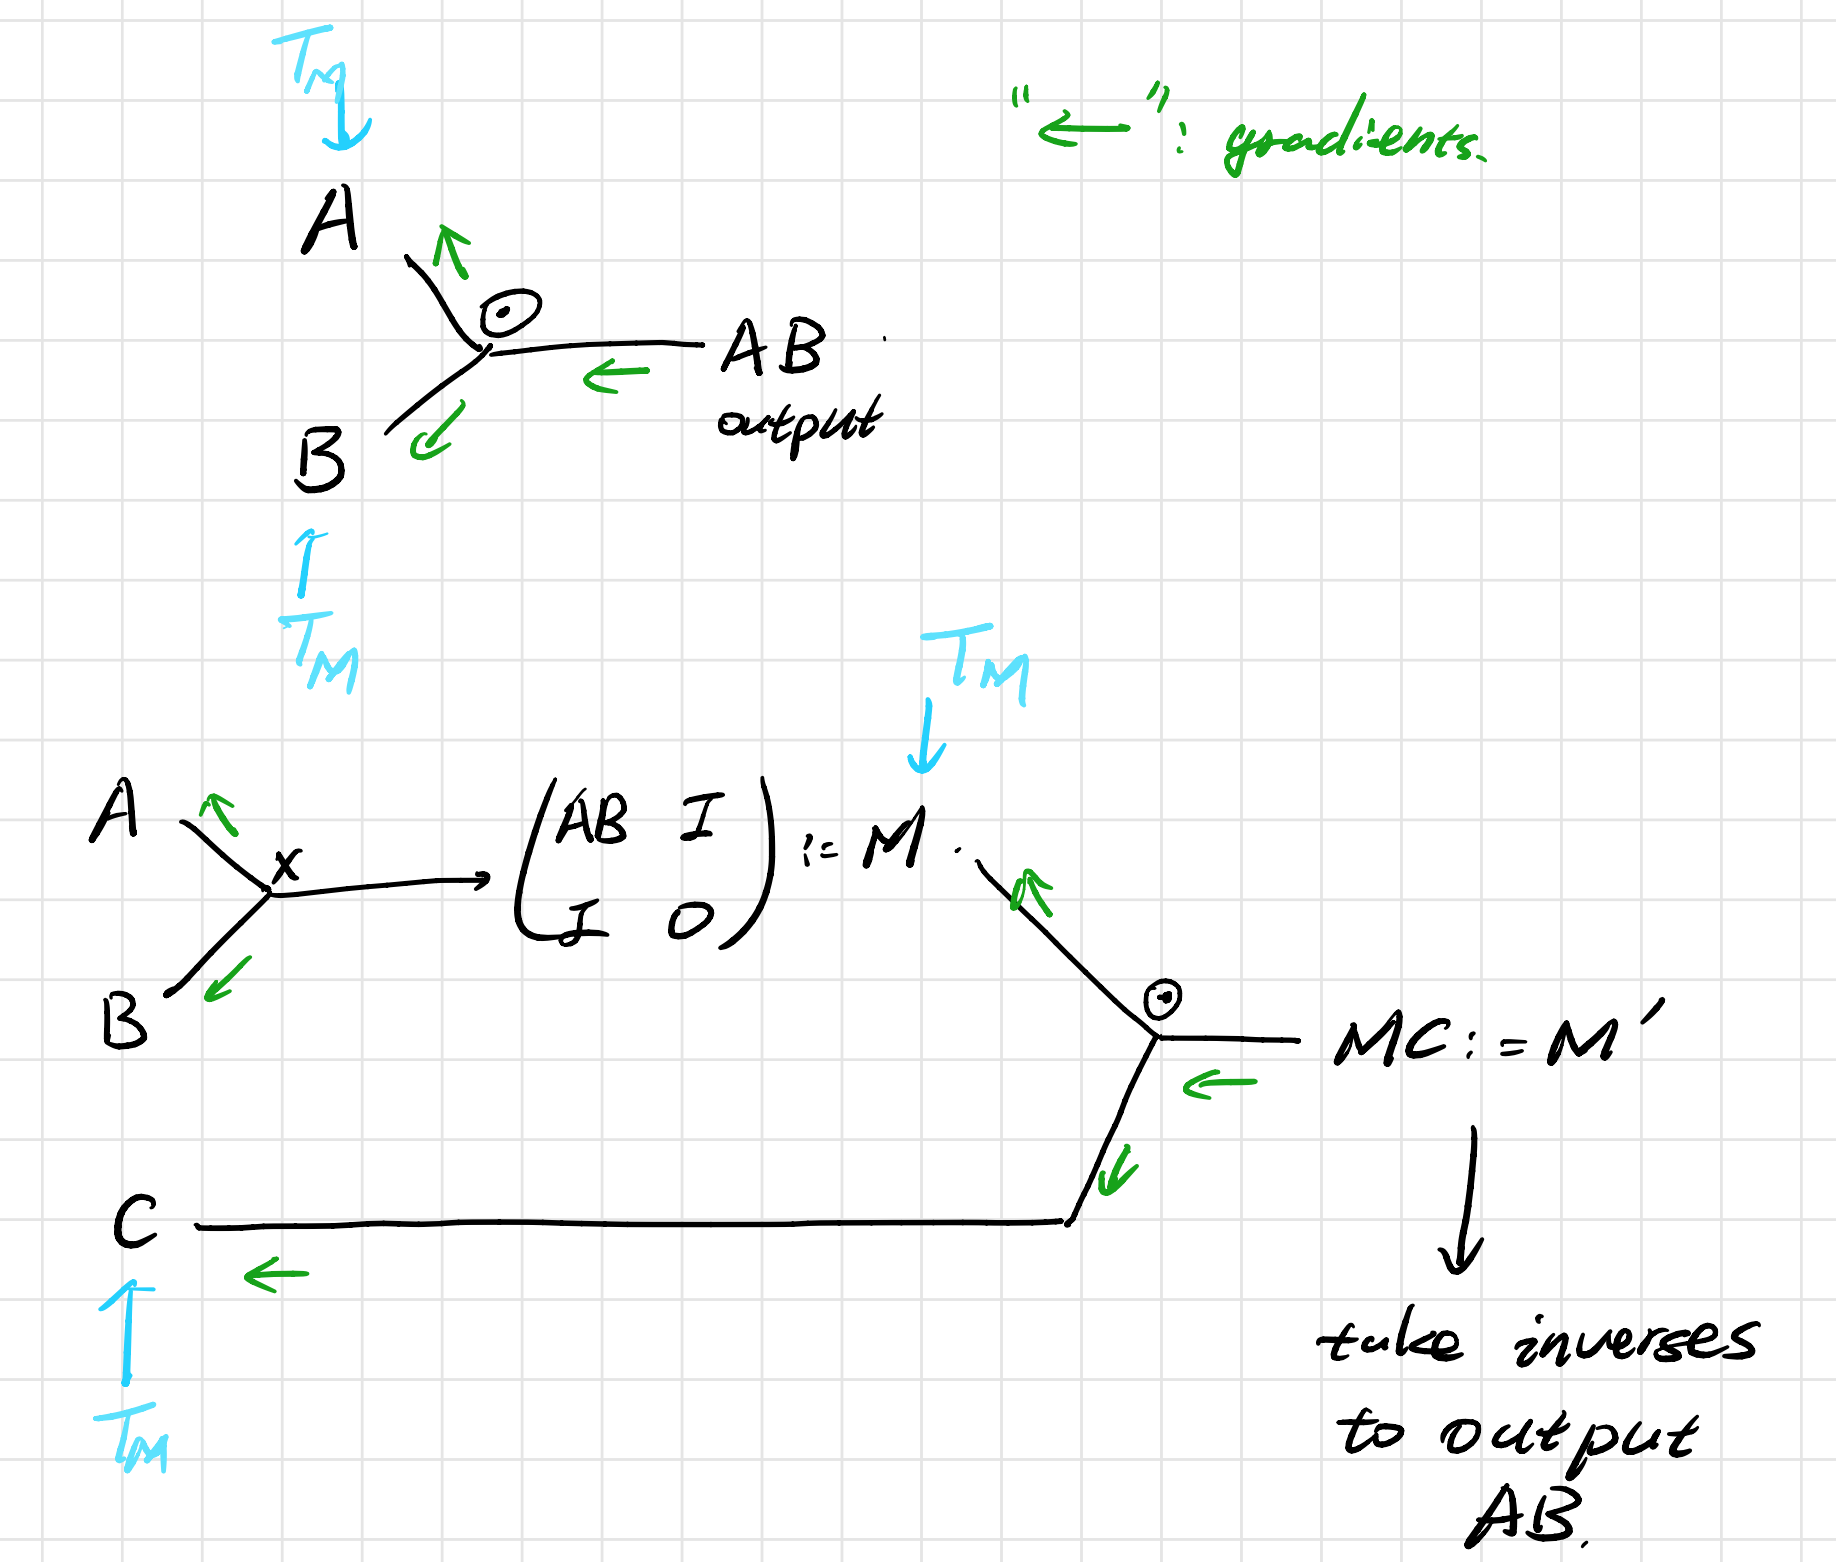 T_M
"←": gradients.
A
⊙
AB
output
B
T_M
T_M
A
×
(AB I
I 0) := M.
B
⊙
MC := M'
C
take inverses
to output
AB.
T_M